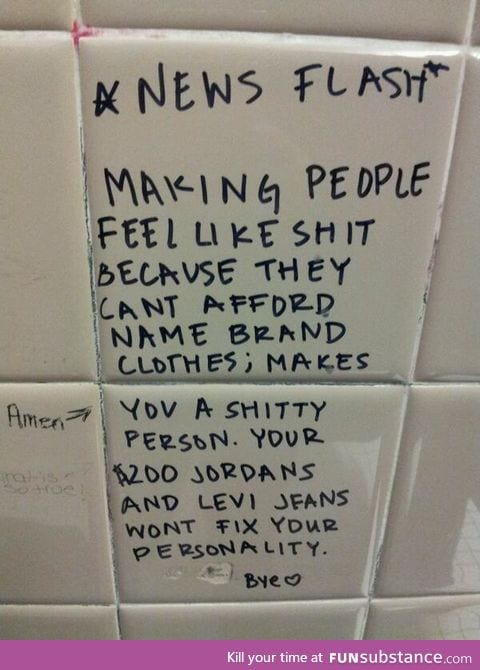 *NEWS FLASH*
MAKING PEOPLE
FEEL LIKE SHIT
BECAUSE THEY
CANT AFFORD
NAME BRAND
CLOTHES; MAKES
YOU A SHITTY
PERSON. YOUR
$200 JORDANS
AND LEVI JEANS
WONT FIX YOUR
PERSONALITY.
Bye♡
Amen→
so true!
Kill your time at FUNsubstance.com